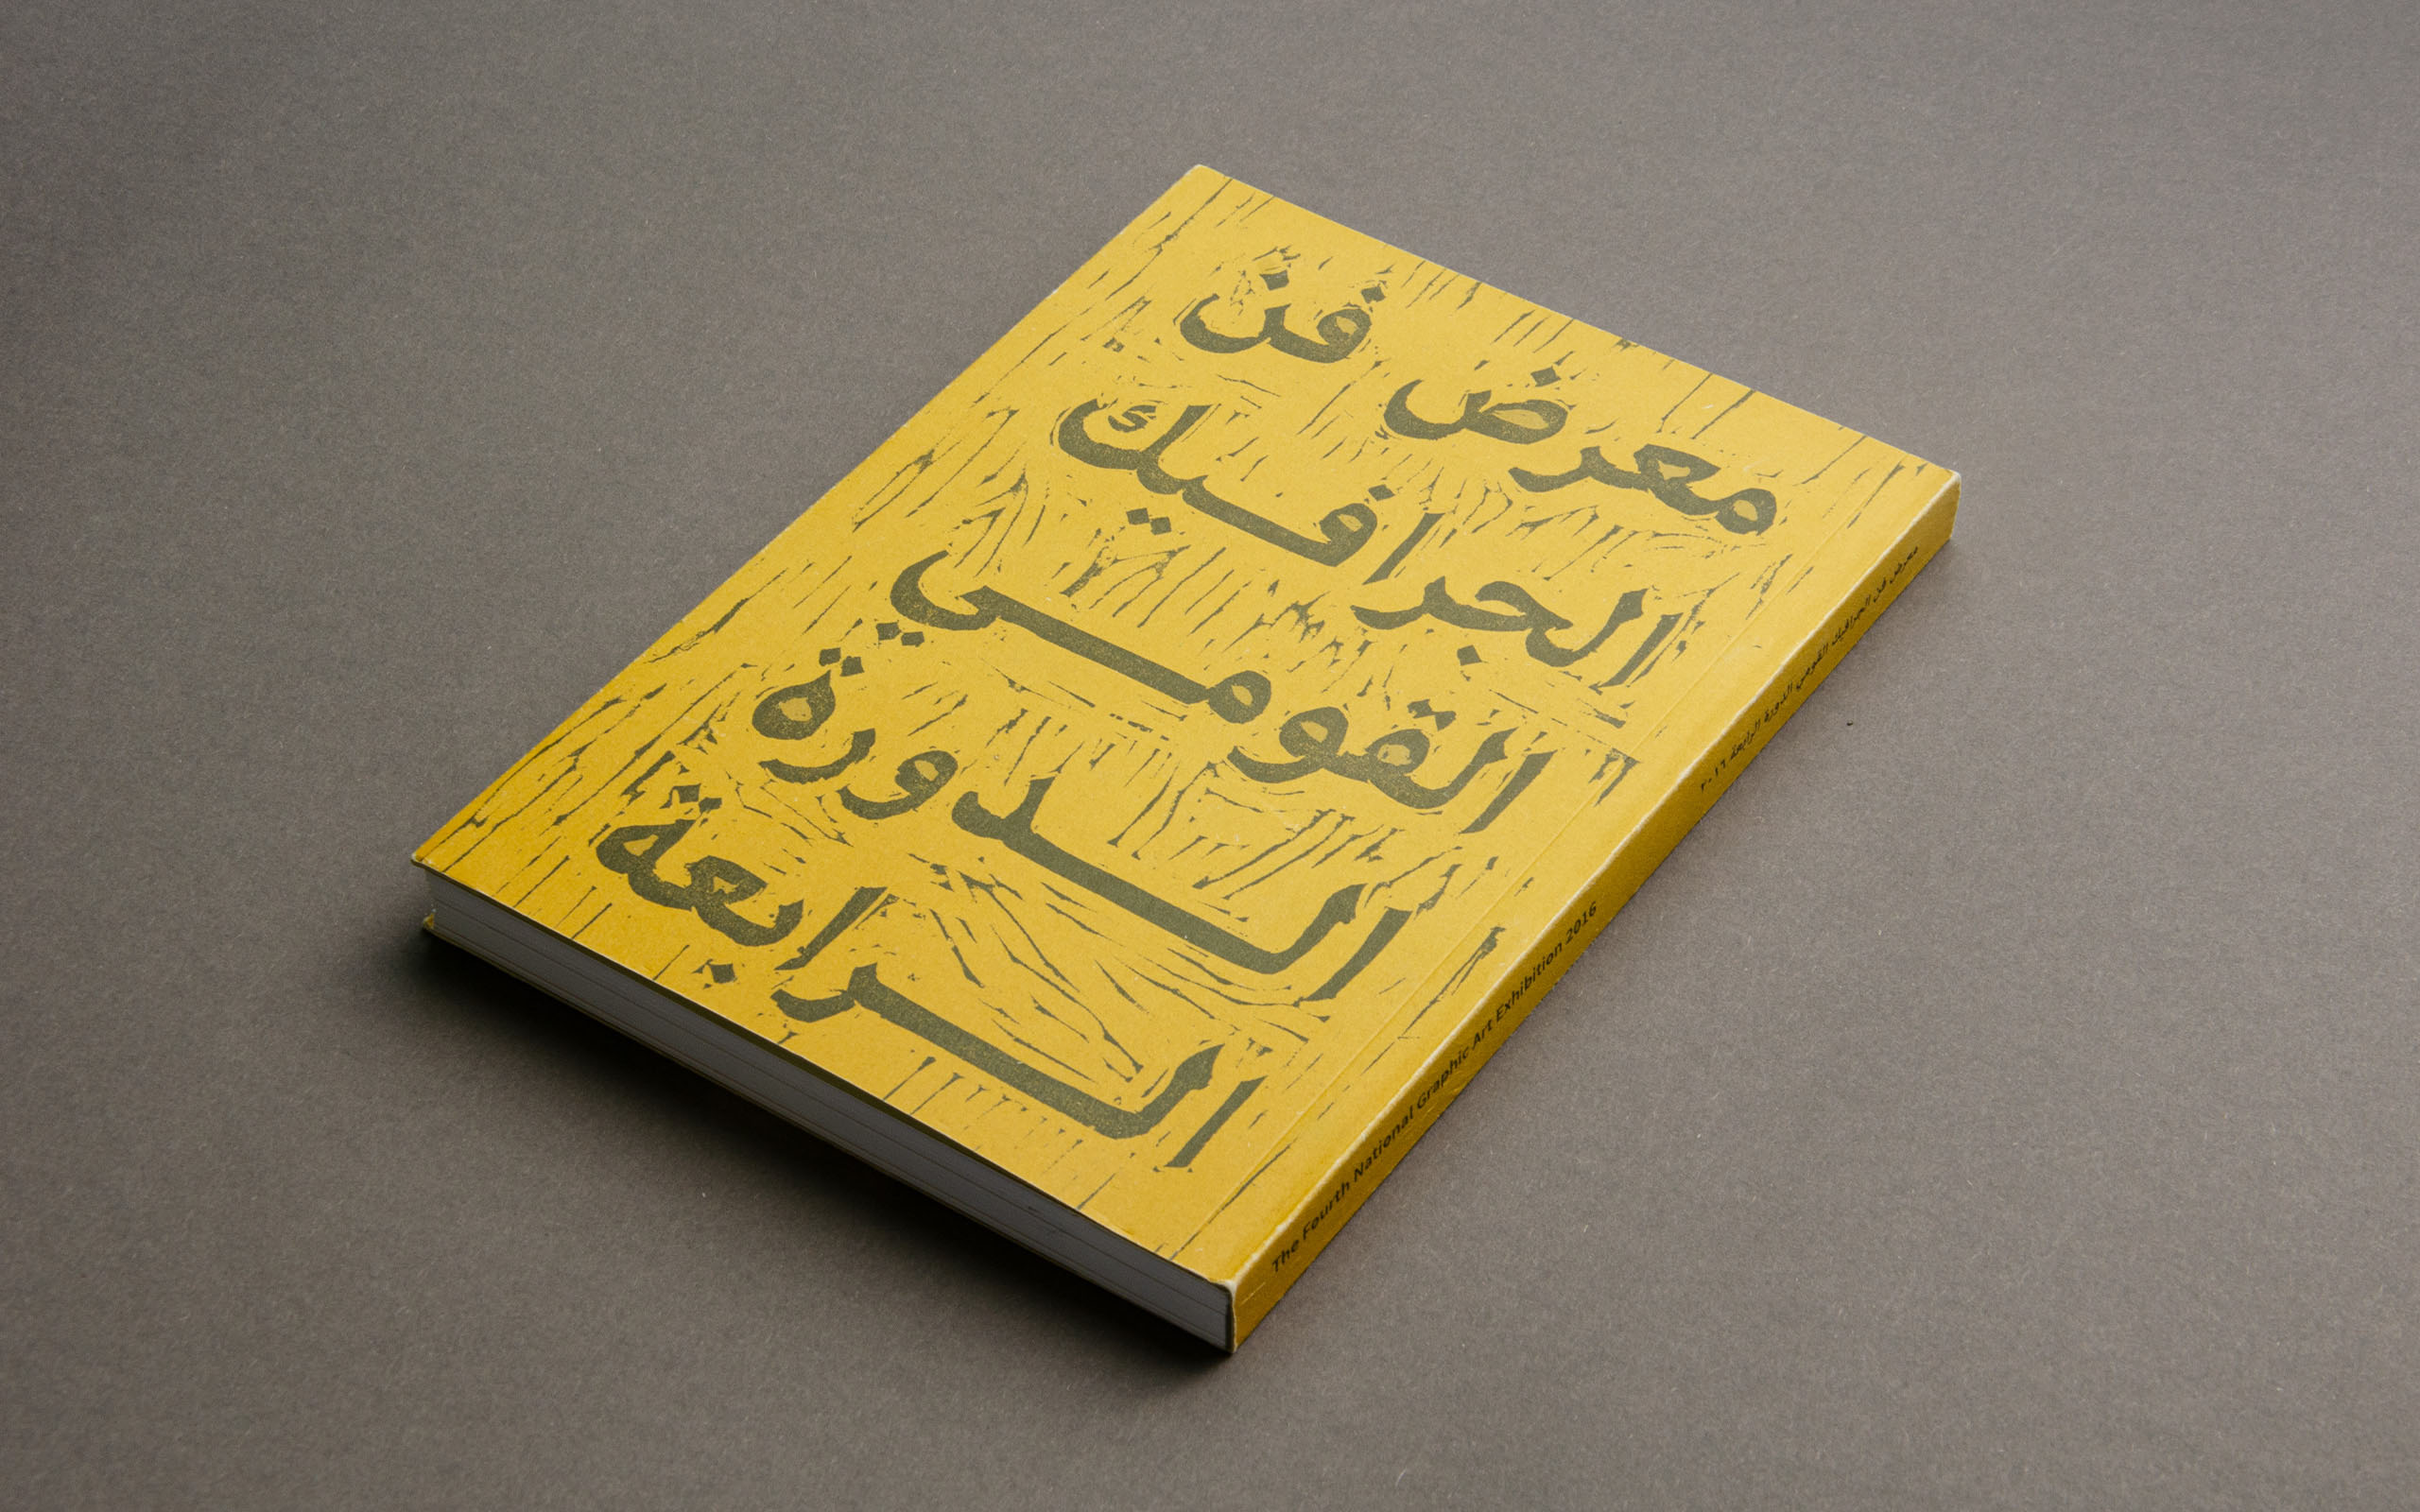 معرض فن
الجرافيك
القومي
الدورة
الرابعة
معرض فن الجرافيك القومي الدورة الرابعة ٢٠١٦
The Fourth National Graphic Art Exhibition 2016